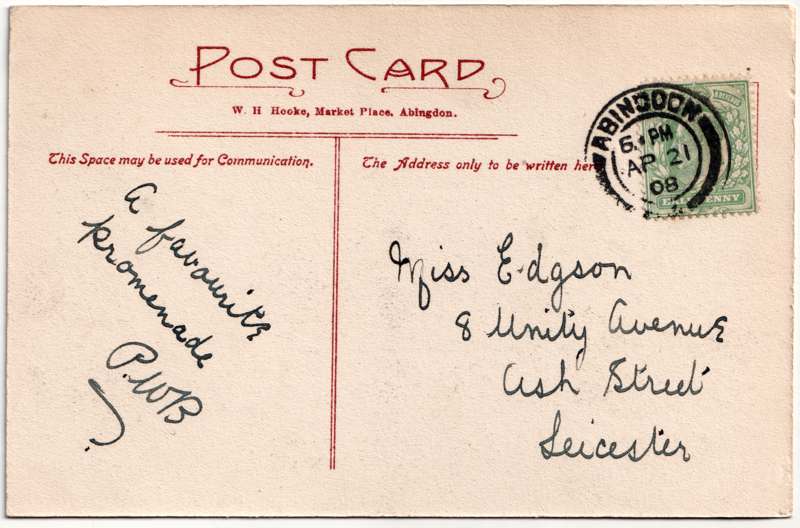 POST CARD
W. H Hooke, Market Place, Abingdon.
This Space may be used for Communication.
The Address only to be written here
A favourite
promenade
P.WB
Miss Edgson
8 Unity Avenue
Ash Street
Leicester
ABINGDON
PM
AP 21
08